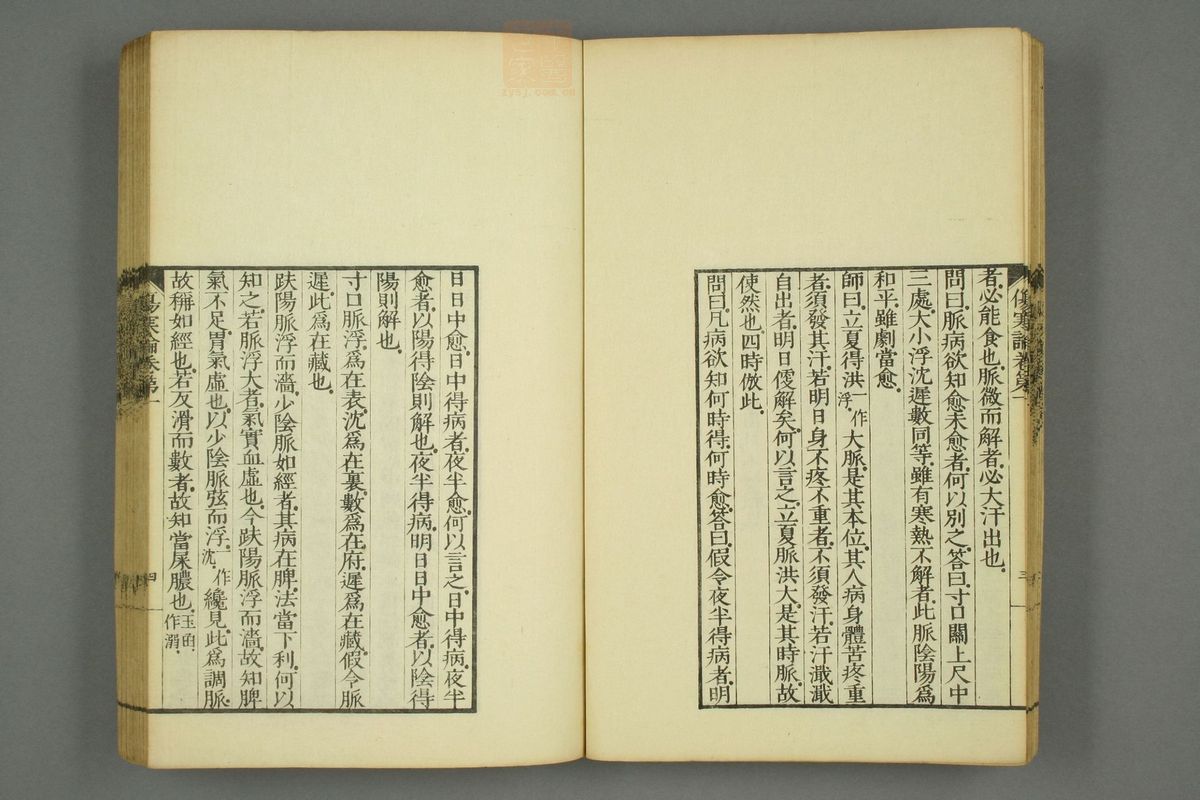 傷寒論卷第一
三
者。必能食也。脈微而解者。必大汗出也。
問曰。脈病欲知愈未愈者。何以別之。答曰。寸口關上尺中
三處。大小浮沈遲數同等。雖有寒熱不解者。此脈陰陽爲
和平。雖劇當愈。
師曰。立夏得洪一作浮。大脈。是其本位。其人病身體苦疼重
者。須發其汗。若明日身不疼不重者。不須發汗。若汗濈濈
自出者。明日便解矣。何以言之。立夏脈洪大。是其時脈。故
使然也。四時倣此。
問曰。凡病欲知何時得。何時愈。答曰。假令夜半得病者。明
日日中愈。日中得病者。夜半愈。何以言之。日中得病。夜半
愈者。以陽得陰則解也。夜半得病。明日日中愈者。以陰得
陽則解也。
寸口脈浮。爲在表。沈爲在裏。數爲在府。遲爲在藏。假令脈
遲。此爲在藏也。
趺陽脈浮而濇。少陰脈如經者。其病在脾。法當下利。何以
知之。若脈浮大者。氣實血虛也。今趺陽脈浮而濇。故知脾
氣不足。胃氣虛也。以少陰脈弦而浮。一作沈。纔見。此爲調脈。
故稱如經也。若反滑而數者。故知當屎膿也。玉函作溺。
傷寒論卷第一
四
zysj.com.cn